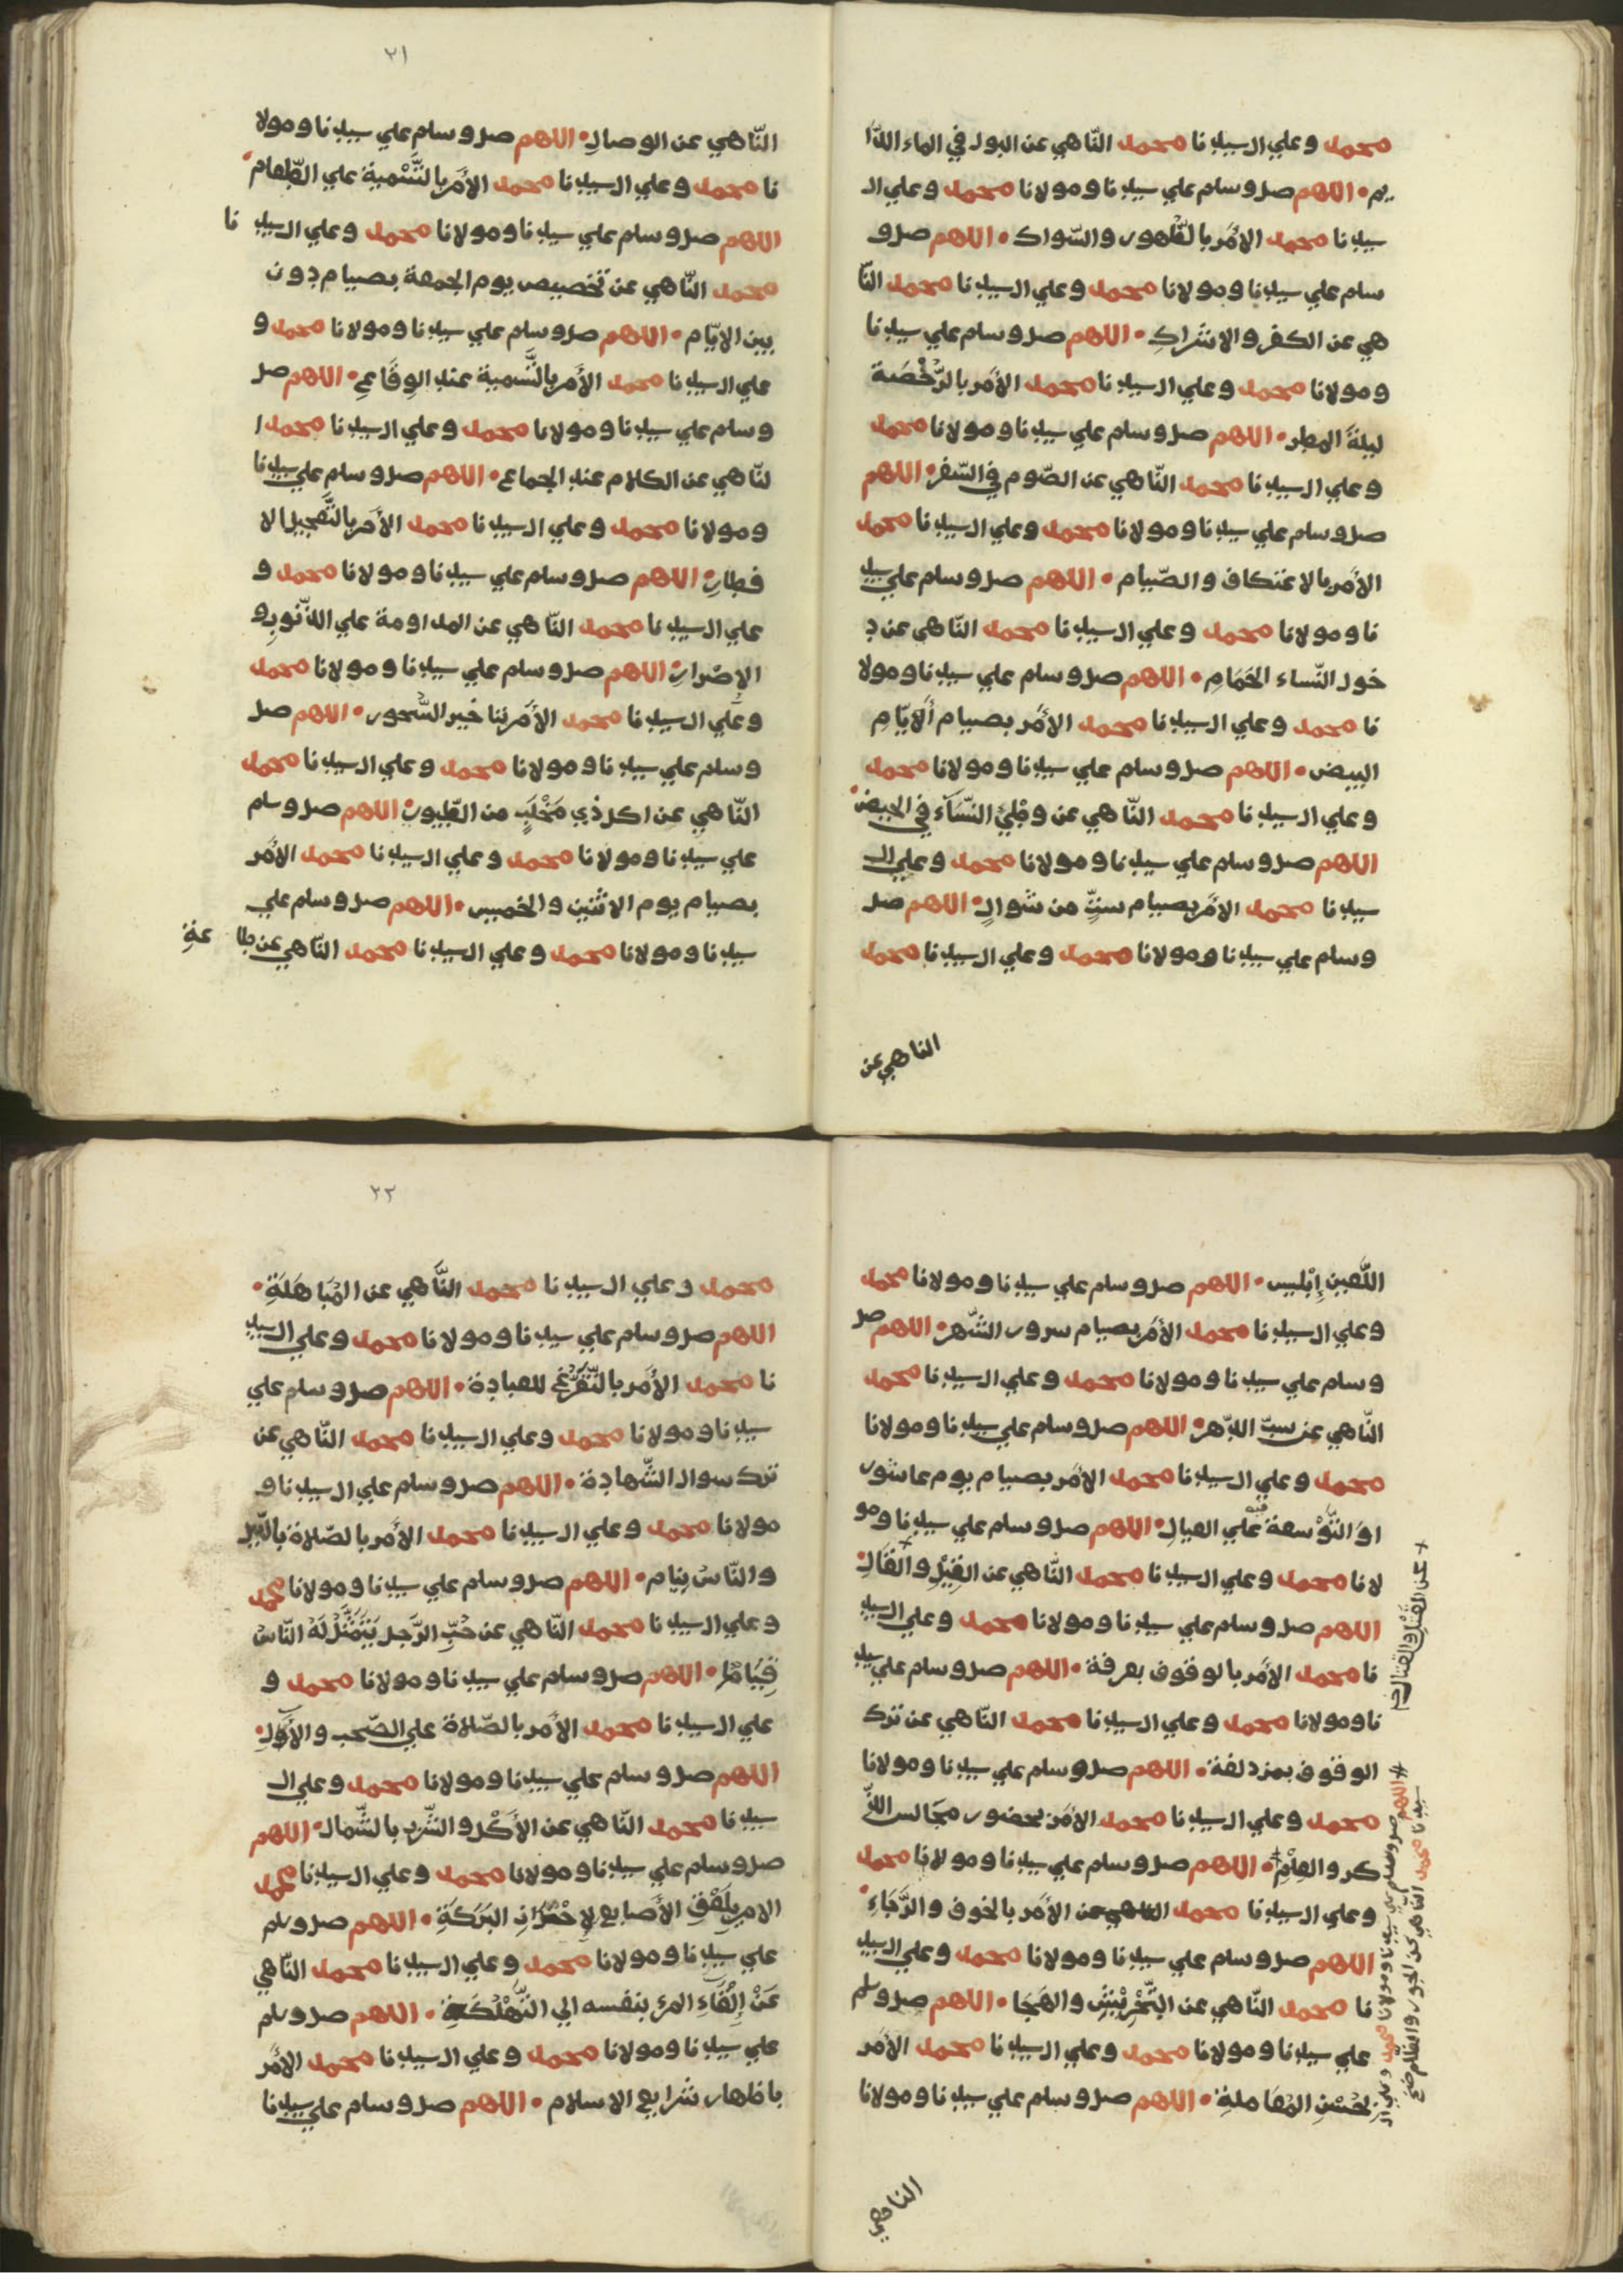 محمد وعلي ال سيدنا محمد النّاهي عن البول في الماء الدّا
يم • اللهم صل وسلم علي سيدنا ومولانا محمد وعلي ال
سيدنا محمد الأمر بالطّهور والسّواك • اللهم صل و
سلم علي سيدنا ومولانا محمد وعلي ال سيدنا محمد النّا
هي عن الكفر والاشراكِ • اللهم صل وسلم علي سيدنا
ومولانا محمد وعلي ال سيدنا محمد الأمر بالرّخْصَة
ليلة المطر • اللهم صل وسلم علي سيدنا ومولانا محمد
وعلي ال سيدنا محمد النّاهي عن الصّوم في السّفر • اللهم
صل وسلم علي سيدنا ومولانا محمد وعلي ال سيدنا محمد
الأمر بالاعتكاف والصّيام • اللهم صل وسلم علي سيد
نا ومولانا محمد وعلي ال سيدنا محمد النّاهي عن د
خول النّساء الحَمَّامِ • اللهم صل وسلم علي سيدنا ومولا
نا محمد وعلي ال سيدنا محمد الأمر بصيام ألايّامِ
البيض • اللهم صل وسلم علي سيدنا ومولانا محمد
وعلي ال سيدنا محمد النّاهي عن وطْئِ النّسَآء في الحيض •
اللهم صل وسلم علي سيدنا ومولانا محمد وعلي ال
سيدنا محمد الأمر بصيام ستٍّ من شوالٍ • اللهم صل
وسلم علي سيدنا ومولانا محمد وعلي ال سيدنا محمد
الناهي عن
٢١
النّاهي عن الوصالِ • اللهم صل وسلم علي سيدنا ومولا
نا محمد وعلي ال سيدنا محمد الأمر بالتَّسْمية علي الطّعام •
اللهم صل وسلم علي سيدنا ومولانا محمد وعلي ال سيد نا
محمد النّاهي عن تخصيص يوم الجمعة بصيام دون
بين الايّام • اللهم صل وسلم علي سيدنا ومولانا محمد و
علي ال سيدنا محمد الأمر بالتَّسمية عند الوِقَاعِ • اللهم صل
وسلم علي سيدنا ومولانا محمد وعلي ال سيدنا محمد ا
لنّاهي عن الكلام عند الجماع • اللهم صل وسلم علي سيدنا
ومولانا محمد وعلي ال سيدنا محمد الأمر بالتَّعجيل الا
فطارِ • اللهم صل وسلم علي سيدنا ومولانا محمد و
علي ال سيدنا محمد النّاهي عن المداومة علي الذّنوبِ و
الإصْرارِ • اللهم صل وسلم علي سيدنا ومولانا محمد
وعلي ال سيدنا محمد الأمر بتاخير السّحور • اللهم صل
وسلم علي سيدنا ومولانا محمد وعلي ال سيدنا محمد
النّاهي عن اكل ذي مَخْلَبٍ من الطّيورِ • اللهم صل وسلم
علي سيدنا ومولانا محمد وعلي ال سيدنا محمد الأمر
بصيام يوم الاثنين والخميس • اللهم صل وسلم علي
سيدنا ومولانا محمد وعلي ال سيدنا محمد النّاهي عن طا عة
اللّعين إبْليس • اللهم صل وسلم علي سيدنا ومولانا محمد
وعلي ال سيدنا محمد الأمر بصيام سرور الشّهر • اللهم صل
وسلم علي سيدنا ومولانا محمد وعلي ال سيدنا محمد
النّاهي عن سبّ الدّهر • اللهم صل وسلم علي سيدنا ومولانا
محمد وعلي ال سيدنا محمد الأمر بصيام يوم عاشور
اوَ التّوْسعة فيه علي العيالِ • اللهم صل وسلم علي سيدنا ومو
لانا محمد وعلي ال سيدنا محمد النّاهي عن القِيْلِ والقَالِ •
اللهم صل وسلم علي سيدنا ومولانا محمد وعلي ال سيد
نا محمد الأمر بالوقوف بعرفة • اللهم صل وسلم علي سيد
نا ومولانا محمد وعلي ال سيدنا محمد النّاهي عن ترك
الوقوف بمزدلفة • اللهم صل وسلم علي سيدنا ومولانا
محمد وعلي ال سيدنا محمد الأمر بحضور مجالس الذّ
كر والعِلْمِ • اللهم صل وسلم علي سيدنا ومولانا محمد
وعلي ال سيدنا محمد الأمر بالخوف والرَّجَاءِ •
اللهم صل وسلم علي سيدنا ومولانا محمد وعلي ال سيد
نا محمد النّاهي عن التَّحْرِيْشِ والهَجَا • اللهم صل وسلم
علي سيدنا ومولانا محمد وعلي ال سيدنا محمد الأمر
بحُسْنِ المُعَاملةِ • اللهم صل وسلم علي سيدنا ومولانا
عن القتل والقتال
اللهم صل وسلم علي سيدنا ومولانا محمد وعلي ال
سيدنا محمد النّاهي عن الجور والظّلم صح
الناهي
٢٢
محمد وعلي ال سيدنا محمد النَّاهي عن المُبَاهَلَةِ •
اللهم صل وسلم علي سيدنا ومولانا محمد وعلي ال سيد
نا محمد الأمر بالتَّفَرُّغِ للعبادة • اللهم صل وسلم علي
سيدنا ومولانا محمد وعلي ال سيدنا محمد النّاهي عن
ترك سوال الشّهادة • اللهم صل وسلم علي ال سيدنا و
مولانا محمد وعلي ال سيدنا محمد الأمر بالصّلاة بالّيل
والنّاس نِيام • اللهم صل وسلم علي سيدنا ومولانا محمد
وعلي ال سيدنا محمد النّاهي عن حُبِّ الرَّجل يَتَمَثَّلُ لَهُ النّاسُ
قِيَامًا • اللهم صل وسلم علي سيدنا ومولانا محمد و
علي ال سيدنا محمد الأمر بالصّلاة علي الصّحب والآل •
اللهم صل وسلم علي سيدنا ومولانا محمد وعلي ال
سيدنا محمد النّاهي عن الأكْل والشّرب بالشّمال • اللهم
صل وسلم علي سيدنا ومولانا محمد وعلي ال سيدنا محمد
الامر بِلَعْقِ الأصابع لإحْرَازِ البَرَكَةِ • اللهم صل وسلم
علي سيدنا ومولانا محمد وعلي ال سيدنا محمد النّاهي
عَنْ إلْقَاءِ المرء بنفسه الي التَّهْلُكَةِ • اللهم صل وسلم
علي سيدنا ومولانا محمد وعلي ال سيدنا محمد الأمر
باظهار شرايع الاسلام • اللهم صل وسلم علي سيدنا